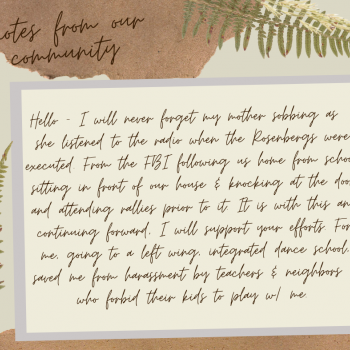 notes from our
community
Hello - I will never forget my mother sobbing as
she listened to the radio when the Rosenbergs were
executed. From the FBI following us home from school
sitting in front of our house & knocking at the door
and attending rallies prior to it. It is with this an
continuing forward, I will support your efforts. For
me, going to a left wing, integrated dance school,
saved me from harassment by teachers & neighbors
who forbid their kids to play w/ me